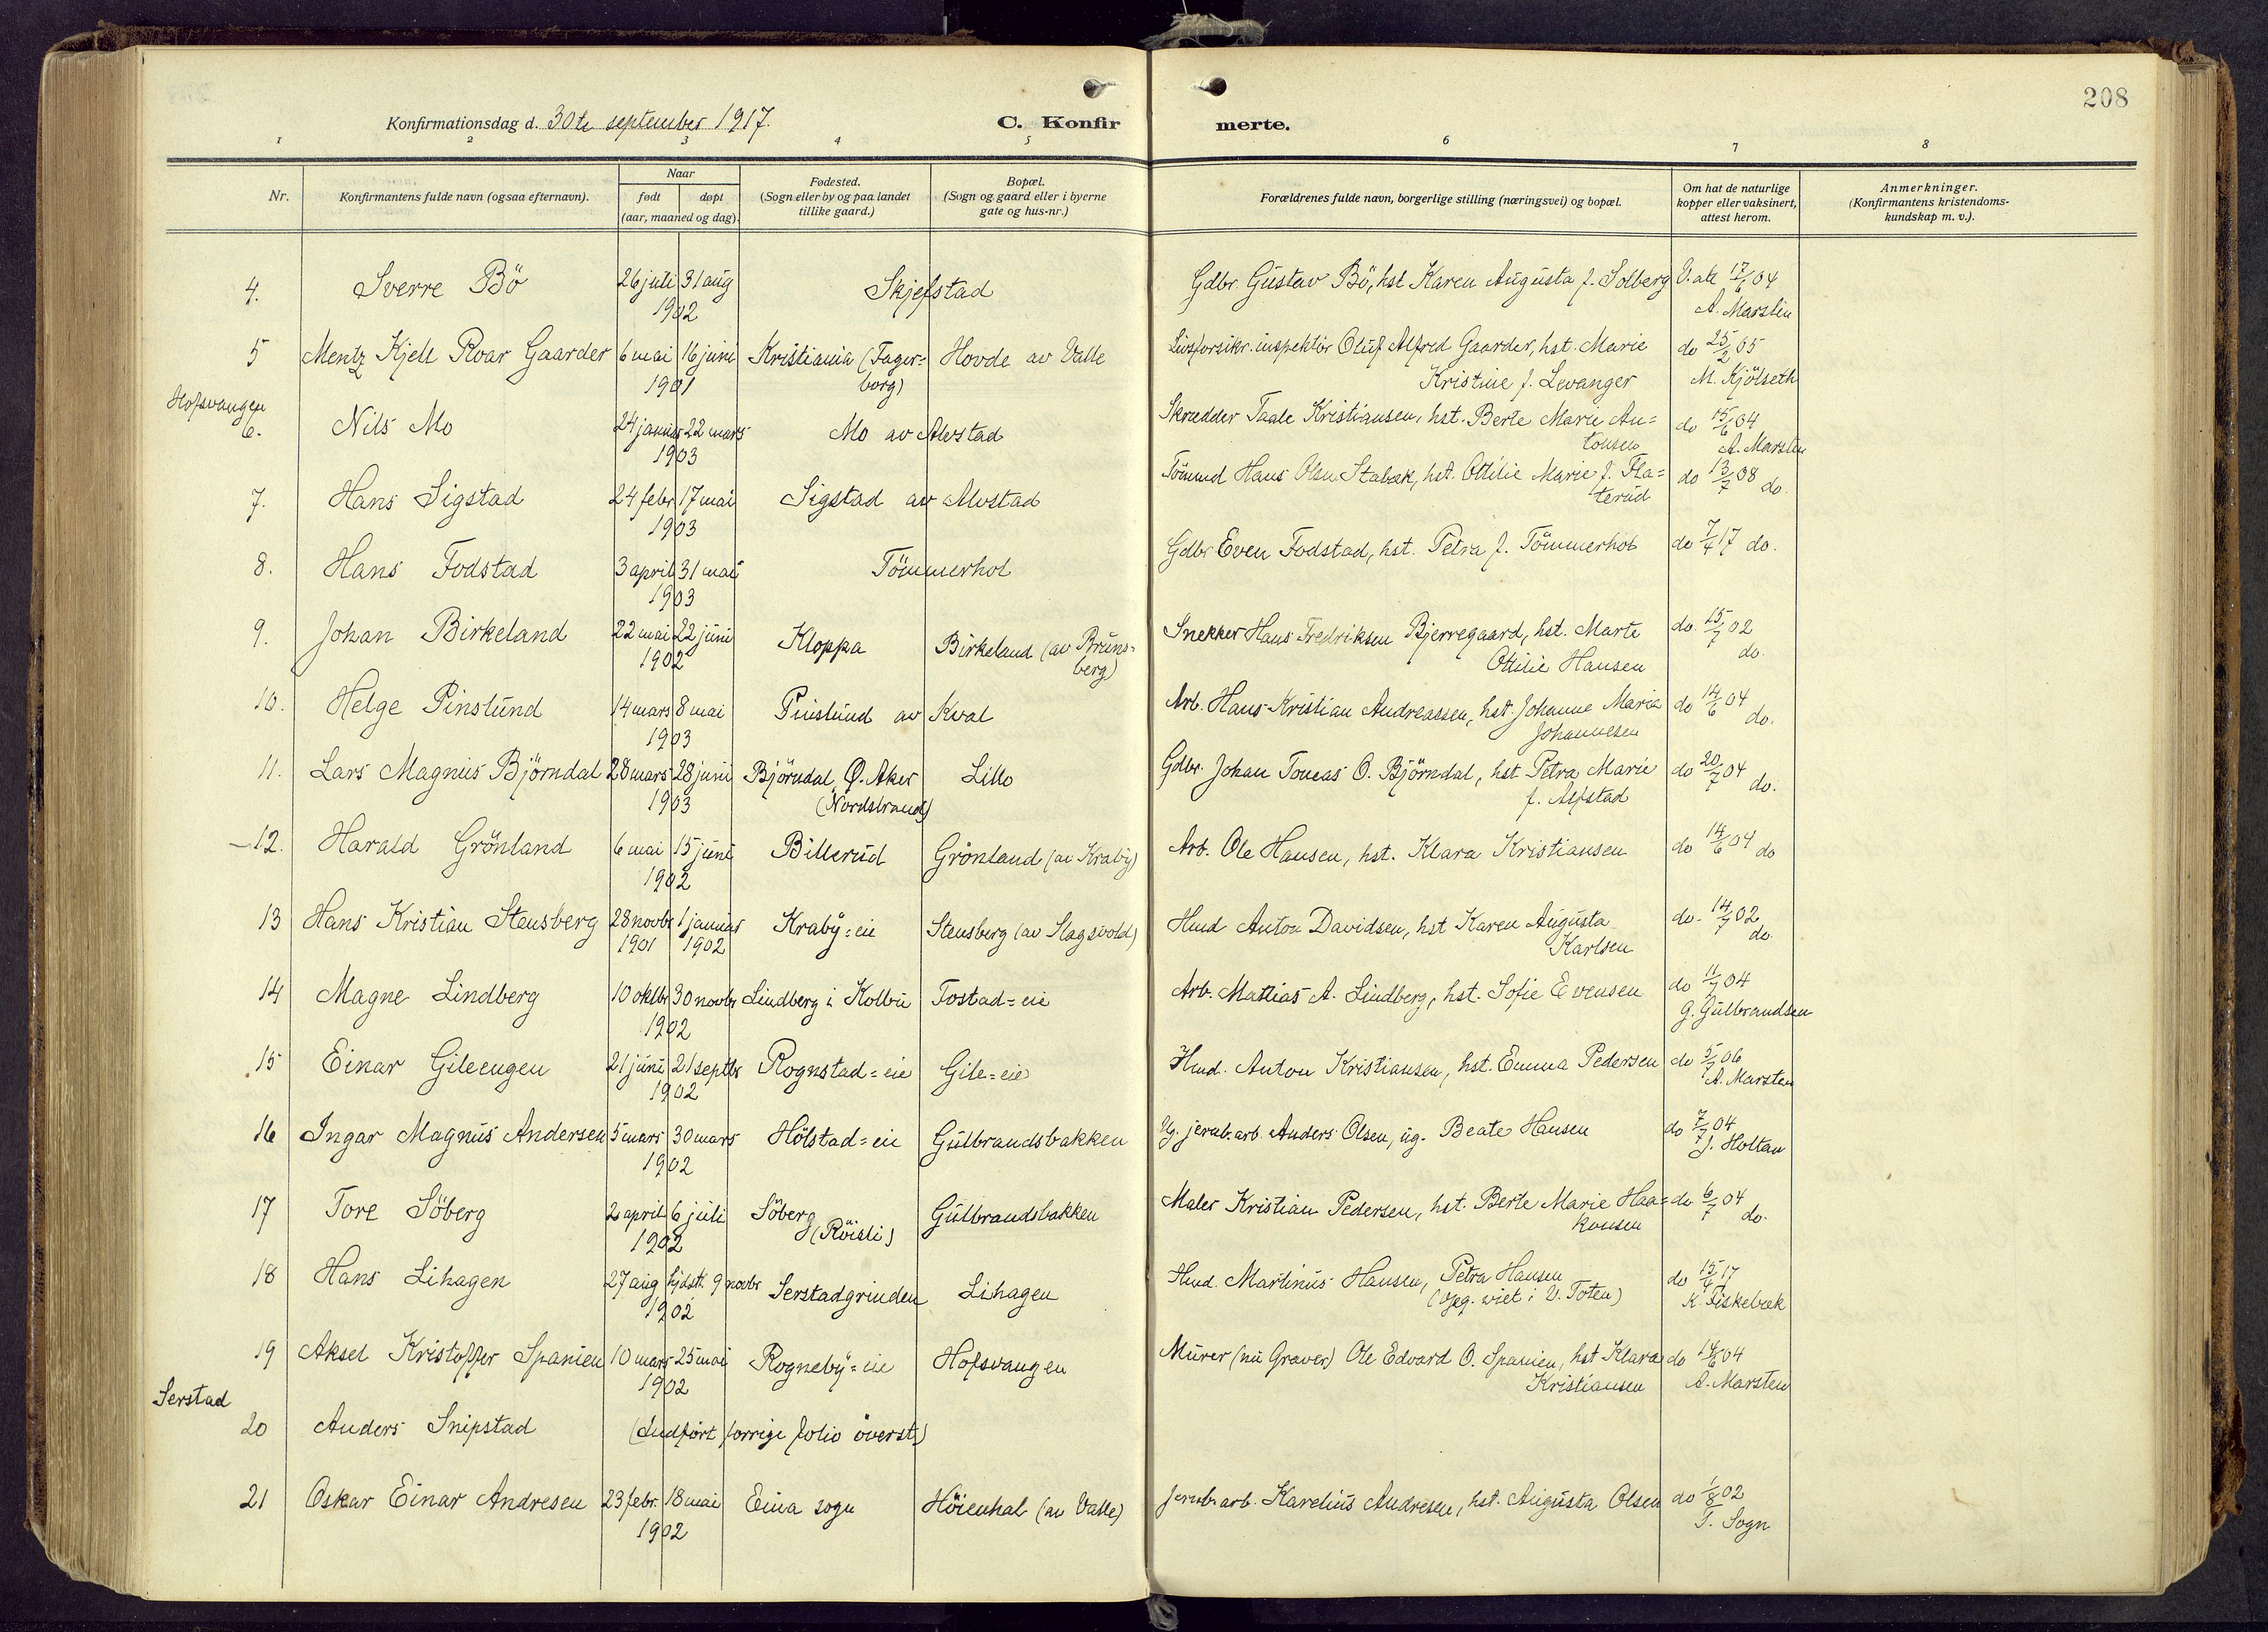 208
Konfirmationsdag d. 30te september 1917.
C. Konfir
merte.
1 2 3 4 5 6 7 8
Nr.
Konfirmantens fulde navn (ogsaa efternavn).
Naar
født døpt
(aar, maaned og dag).
Fødested.
(Sogn eller by og paa landet
tillike gaard.)
Bopæl.
(Sogn og gaard eller i byerne
gate og hus-nr.)
Forældrenes fulde navn, borgerlige stilling (næringsvei) og bopæl.
Om hat de naturlige
kopper eller vaksinert,
attest herom.
Anmerkninger.
(Konfirmantens kristendoms-
kundskap m. v.).
4. Sverre Bö 26 juli 31 aug Skjefstad Gdbr. Gustav Bö, hst Karen Augusta f. Solberg V. att 17/6 04
1902 A. Marsten
5 Mentz Kjell Roar Gaarder 6 mai 16 juni Kristiania (Fager= Hovde av Valle Livsforsikr. inspektör Oluf Alfred Gaarder, hst. Marie do 25/2 05
1901 borg) Kristine f. Levanger M. Kjölseth
Hofsvangen
6. Nils Mo 24 januar 22 mars Mo av Alvstad Skrædder Taale Kristiansen, hst. Berte Marie An= do 15/6 04
1903 tonsen A. Marsten
7. Hans Sigstad 24 febr 17 mai Sigstad av Alvstad Tömmd Hans Olsen Stabæk, hst. Ottilie Marie f. Fla= do 13/7 08 do.
1903 terud
8. Hans Fodstad 3 april 31 mai Tömmerhol Gdbr Even Fodstad, hst. Petra f. Tömmerhol do 7/4 17 do.
1903
9. Johan Birkeland 22 mai 22 juni Kloppa Birkeland (av Bruns= Snekker Hans Fredriksen Bjerregaard, hst. Marte do. 15/7 02
1902 berg) Ottilie Hansen do.
10. Helge Pinslund 14 mars 8 mai Pinslund av Kval Arb. Hans Kristian Andreassen, hst. Johanne Marie do 14/6 04 do.
1903 Johannesen
11. Lars Magnus Björndal 28 mars 28 juni Björndal, Ø. Aker Lillo Gdbr. Johan Tomas O. Björndal, hst Petra Marie do 20/7 04 do.
1903 (Nordstrand) f. Alfstad
12. Harald Grönland 6 mai 15 juni Billerud Grönland (av Kraby) Arb. Ole Hansen, hst. Klara Kristiansen do 14/6 04 do
1902
13 Hans Kristian Stensberg 28 novbr 1 januar Kraby=eie Stensberg (av Slagsvold) Hmd Anton Davidsen, hst Karen Augusta do. 14/7 02
1901 1902 Karlsen do.
14 Magne Lindberg 10 oktbr 30 novbr Lindberg i Kolbu Fostad=eie Arb. Mattias A. Lindberg, hst. Sofie Evensen do 11/7 04
1902 G. Gulbrandsen
15 Einar Gileengen 21 juni 21 septbr Rognstad=eie Gile=eie Hmd. Anton Kristiansen, hst. Emma Pedersen do 5/7 06
1902 A. Marsten
16 Ingar Magnus Andersen 5 mars 30 mars Hölstad=eie Gulbrandsbakken Ug. jernb.arb. Anders Olsen, ug. Beate Hansen do 7/7 04
1902 J. Holtan
17 Tore Söberg 2 april 6 juli Söberg Gulbrandsbakken Maler Kristian Pedersen, hst. Berte Marie Haa= do 6/7 04
1902 (Röisli) konsen do.
18 Hans Lihagen 27 aug hjdst. 9 novbr Serstadgrinden Lihagen Hmd. Martinus Hansen, Petra Hansen do 15/4 17
1902 viet i V. Toten) K. Fiskebæk
19 Aksel Kristoffer Spanien 10 mars 25 mai Rogneby=eie Hofsvangen Murer (nu Graver) Ole Edvard O. Spanien, hst Klara do 14/6 04
1902 Kristiansen A. Marsten
Serstad
20 Anders Snipstad (Indfört forrige folio överst)
21 Oskar Einar Andresen 23 febr. 18 mai Eina sogn Höienhal (av Valle) Jernb. arb. Karelius Andresen, hst. Augusta Olsen do 1/8 02
1902 T. Sogn